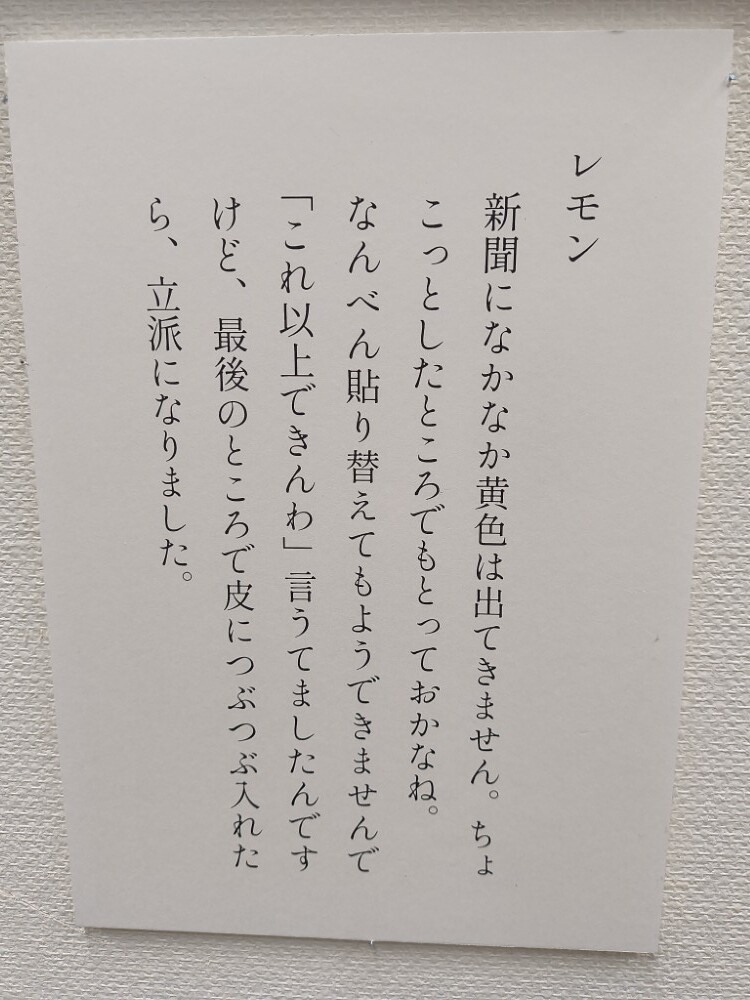 レモン
新聞になかなか黄色は出てきません。ちょ
こっとしたところでもとっておかなね。
なんべん貼り替えてもようできませんで
「これ以上できんわ」言うてましたんです
けど、最後のところで皮につぶつぶ入れた
ら、立派になりました。